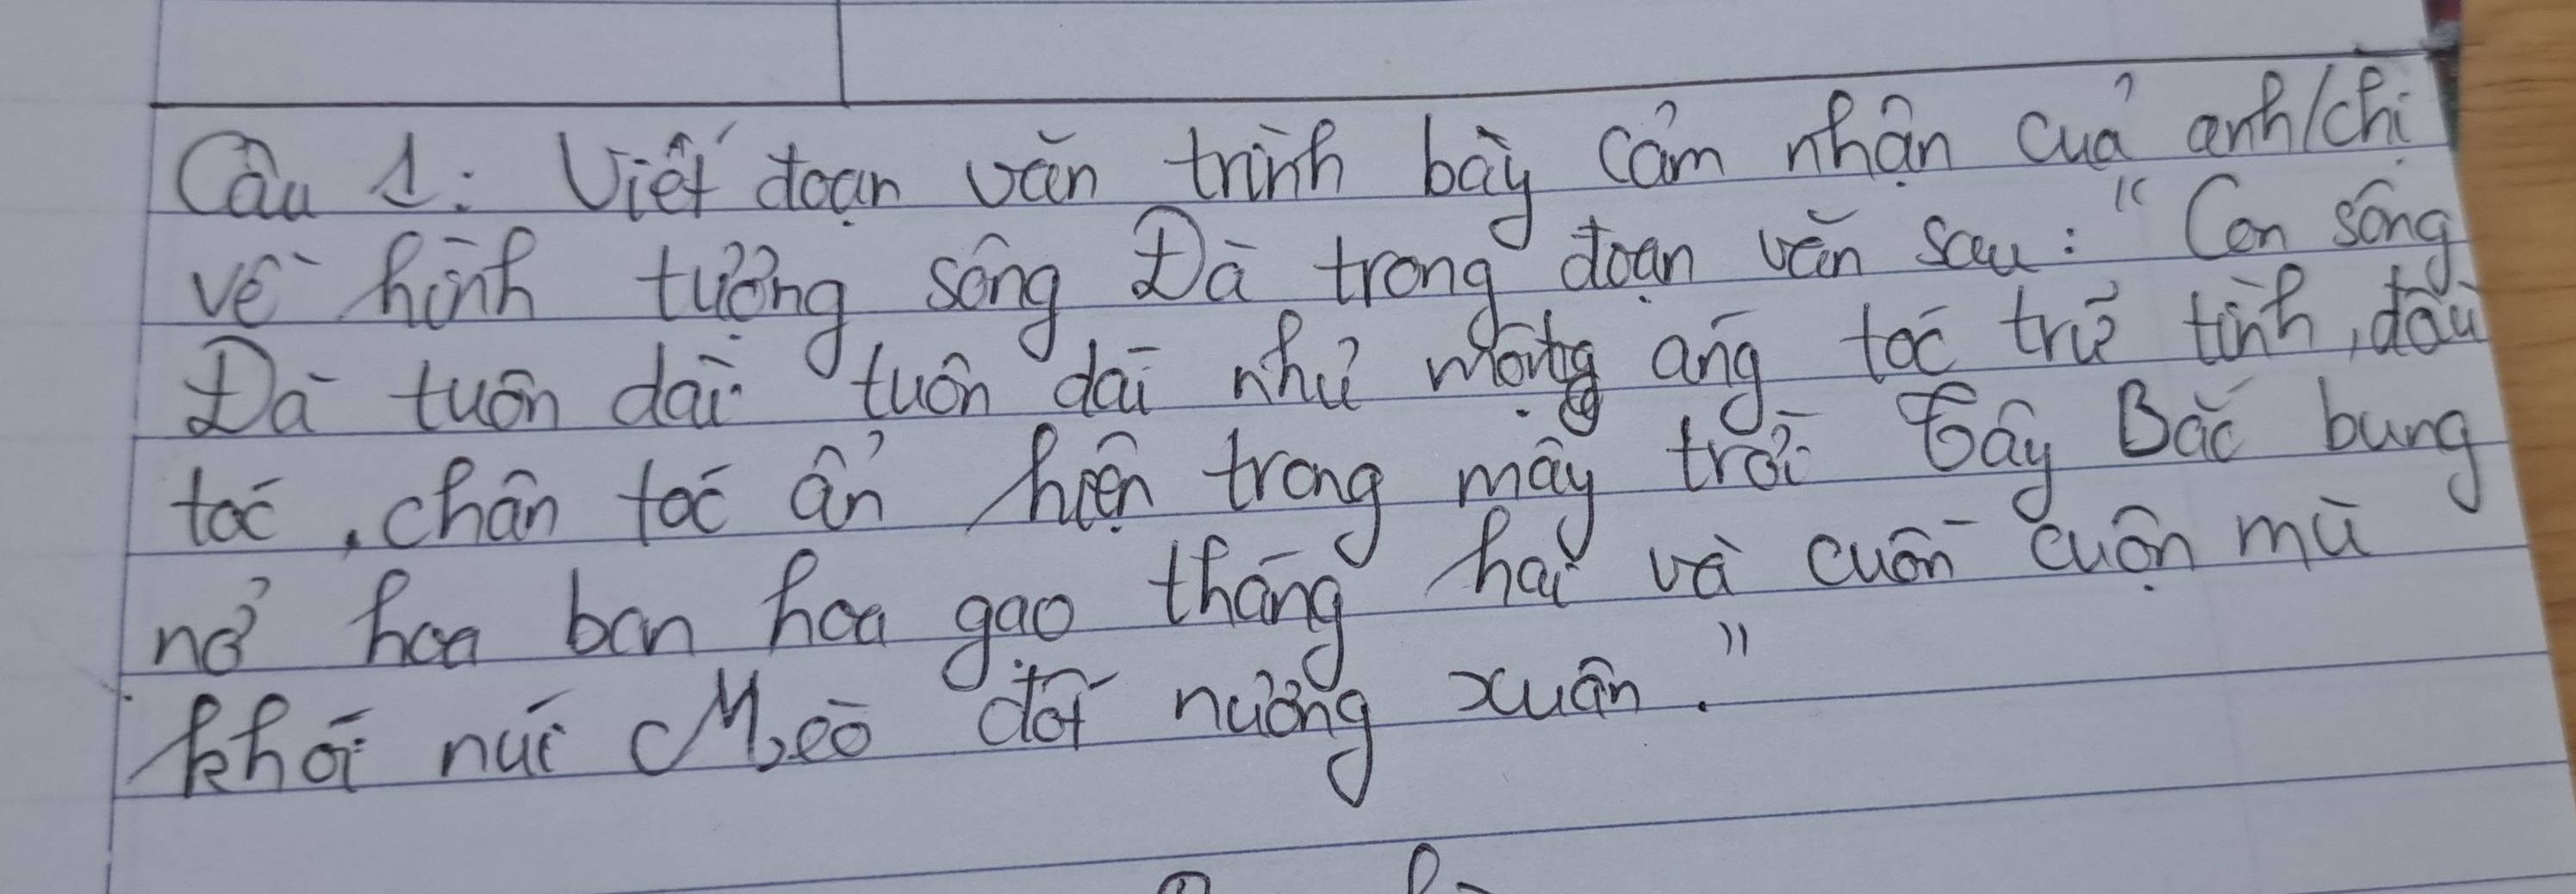 Câu 1: Viết đoạn văn trình bày cảm nhận của anh/chị
về hình tượng sông Đà trong đoạn văn sau: "Con sông
Đà tuôn dài tuôn dài như một áng tóc trữ tình, đầu
tóc, chân tóc ẩn hiện trong mây trời Tây Bắc bung
nở hoa ban hoa gạo tháng hai và cuồn cuộn mù
khói núi Mèo đốt nương xuân."